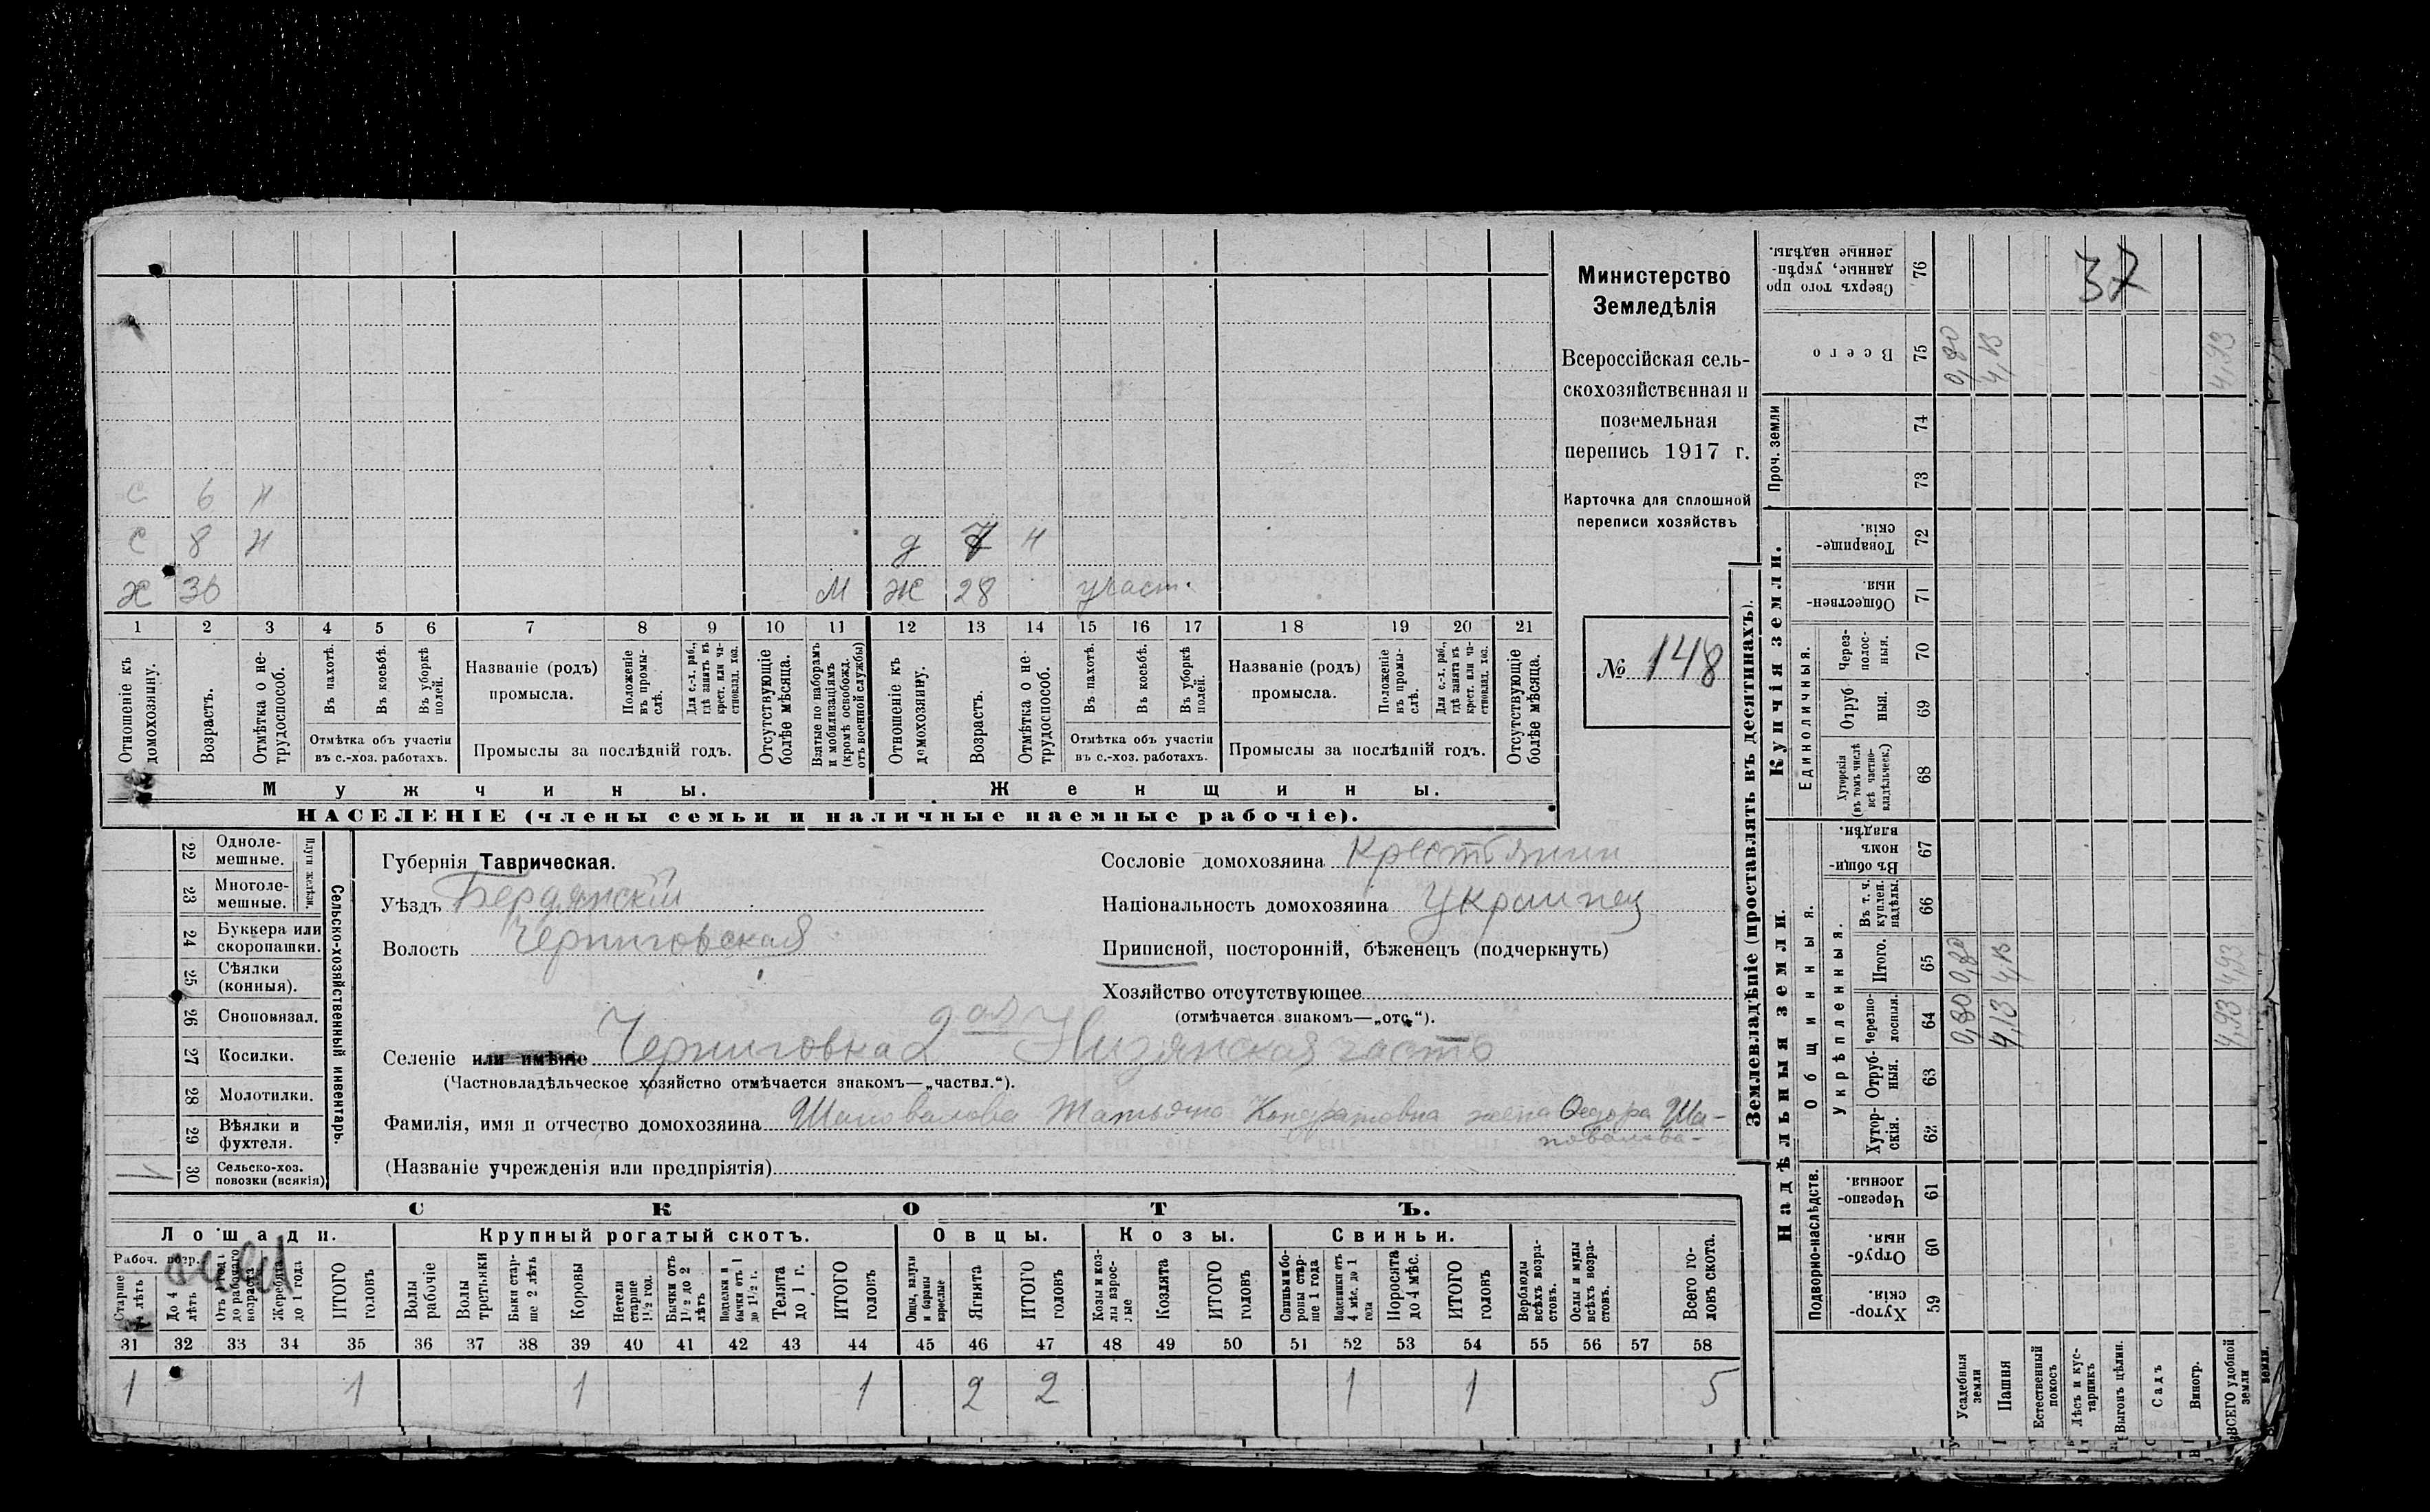 Министерство
Земледѣлія
Всероссійская сель-
скохозяйственная и
поземельная
перепись 1917 г.
Карточка для сплошной
переписи хозяйствъ
№ 148
37
С 6 н
С 8 н д 7 н
Х 36 М Ж 28 участ.
1 2 3 4 5 6 7 8 9 10 11 12 13 14 15 16 17 18 19 20 21
Отношеніе къ домохозяину.
Возрастъ.
Отмѣтка о не-трудоспособ.
Въ пахотѣ.
Въ косьбѣ.
Въ уборкѣ полей.
Отмѣтка объ участіи
въ с.-хоз. работахъ.
Названіе (родъ)
промысла.
Положеніе въ промы-слѣ.
Для с.-х. раб., гдѣ занятъ въ крест. или ча-стновлад. хоз.
Промыслы за послѣдній годъ.
Отсутствующіе болѣе мѣсяца.
Взятые по наборамъ и мобилизаціямъ (кромѣ освобожд. отъ военной службы)
Отношеніе къ домохозяину.
Возрастъ.
Отмѣтка о не-трудоспособ.
Въ пахотѣ.
Въ косьбѣ.
Въ уборкѣ полей.
Отмѣтка объ участіи
въ с.-хоз. работахъ.
Названіе (родъ)
промысла.
Положеніе въ промы-слѣ.
Для с.-х. раб., гдѣ занята въ крест. или ча-стновлад. хоз.
Промыслы за послѣдній годъ.
Отсутствующіе болѣе мѣсяца.
Мужчины. Женщины.
НАСЕЛЕНІЕ (члены семьи и наличные наемные рабочіе).
Сельско-хозяйственный инвентарь.
Плуги желѣзн.
22 Одноле-мешные.
23 Многоле-мешные.
24 Буккера или скоропашки.
25 Сѣялки (конныя).
26 Сноповязал.
27 Косилки.
28 Молотилки.
29 Вѣялки и фухтеля.
1 30 Сельско-хоз. повозки (всякія)
Губернія Таврическая.
Уѣздъ Бердянскій
Волость Черниговская
Сословіе домохозяина Крестьянин
Національность домохозяина Украинец
Приписной, посторонній, бѣженецъ (подчеркнуть)
Хозяйство отсутствующее
(отмѣчается знакомъ—„отс.“).
Селеніе или имѣніе Черниговка 2 ая Низянская часть
(Частновладѣльческое хозяйство отмѣчается знакомъ—„частвл.“).
Фамилія, имя и отчество домохозяина Шаповалова Татьяна Кондратовна жена Федора Ша-
повалова-
(Названіе учрежденія или предпріятія)
СКОТЪ.
Лошади. Крупный рогатый скотъ. Овцы. Козы. Свиньи.
Рабоч. возр.
Старше 4 лѣтъ
До 4 лѣтъ
Отъ 1 года до рабочаго возраста
Жеребята до 1 года
ИТОГО головъ
Волы рабочіе
Волы третьяки
Быки стар-ше 2 лѣтъ
Коровы
Нетели старше 1½ год.
Бычки отъ 1½ до 2 лѣтъ
Подтелки и бычки отъ 1 до 1½ г.
Телята до 1 г.
ИТОГО головъ
Овцы, валухи и бараны взрослые
Ягнята
ИТОГО головъ
Козы и коз-лы взрос-лые
Козлята
ИТОГО головъ
Свиньи и бо-ровы стар-ше 1 года
Подсвинки отъ 4 мѣс. до 1 года
Поросята до 4 мѣс.
ИТОГО головъ
Верблюды всѣхъ возра-стовъ.
Ослы и мулы всѣхъ возра-стовъ.
Всего го-ловъ скота.
31 32 33 34 35 36 37 38 39 40 41 42 43 44 45 46 47 48 49 50 51 52 53 54 55 56 57 58
1 1 1 1 2 2 1 1 5
Землевладѣніе (проставлять въ десятинахъ).
Надѣльныя земли. Купчія земли. Проч. земли
Подворно-наслѣдств.
Общинныя.
Укрѣпленныя.
Единоличныя.
59 Хутор-скія.
60 Отруб-ныя.
61 Черезпо-лосныя.
62 Хутор-скія.
63 Отруб-ныя.
64 Черезпо-лосныя.
65 Итого.
66 Въ т. ч. куплен. надѣлы.
67 Въ общи-номъ владѣн.
68 Хуторскія (въ томъ числѣ всѣ частно-владѣльческ.)
69 Отруб-ныя.
70 Через-полос-ныя.
71 Обществен-ныя.
72 Товарище-скія.
73 74
75 Всего
76 Сверхъ того про-данные, укрѣп-ленные надѣлы.
Усадебныя земли 0,80 0,80 0,80
Пашня 4,13 4,13 4,13
Естественный покосъ
Лѣсъ и кус-тарникъ
Выгонъ цѣлин.
Садъ
Виногр.
ВСЕГО удобной земли 4,93 4,93 4,93
земли.